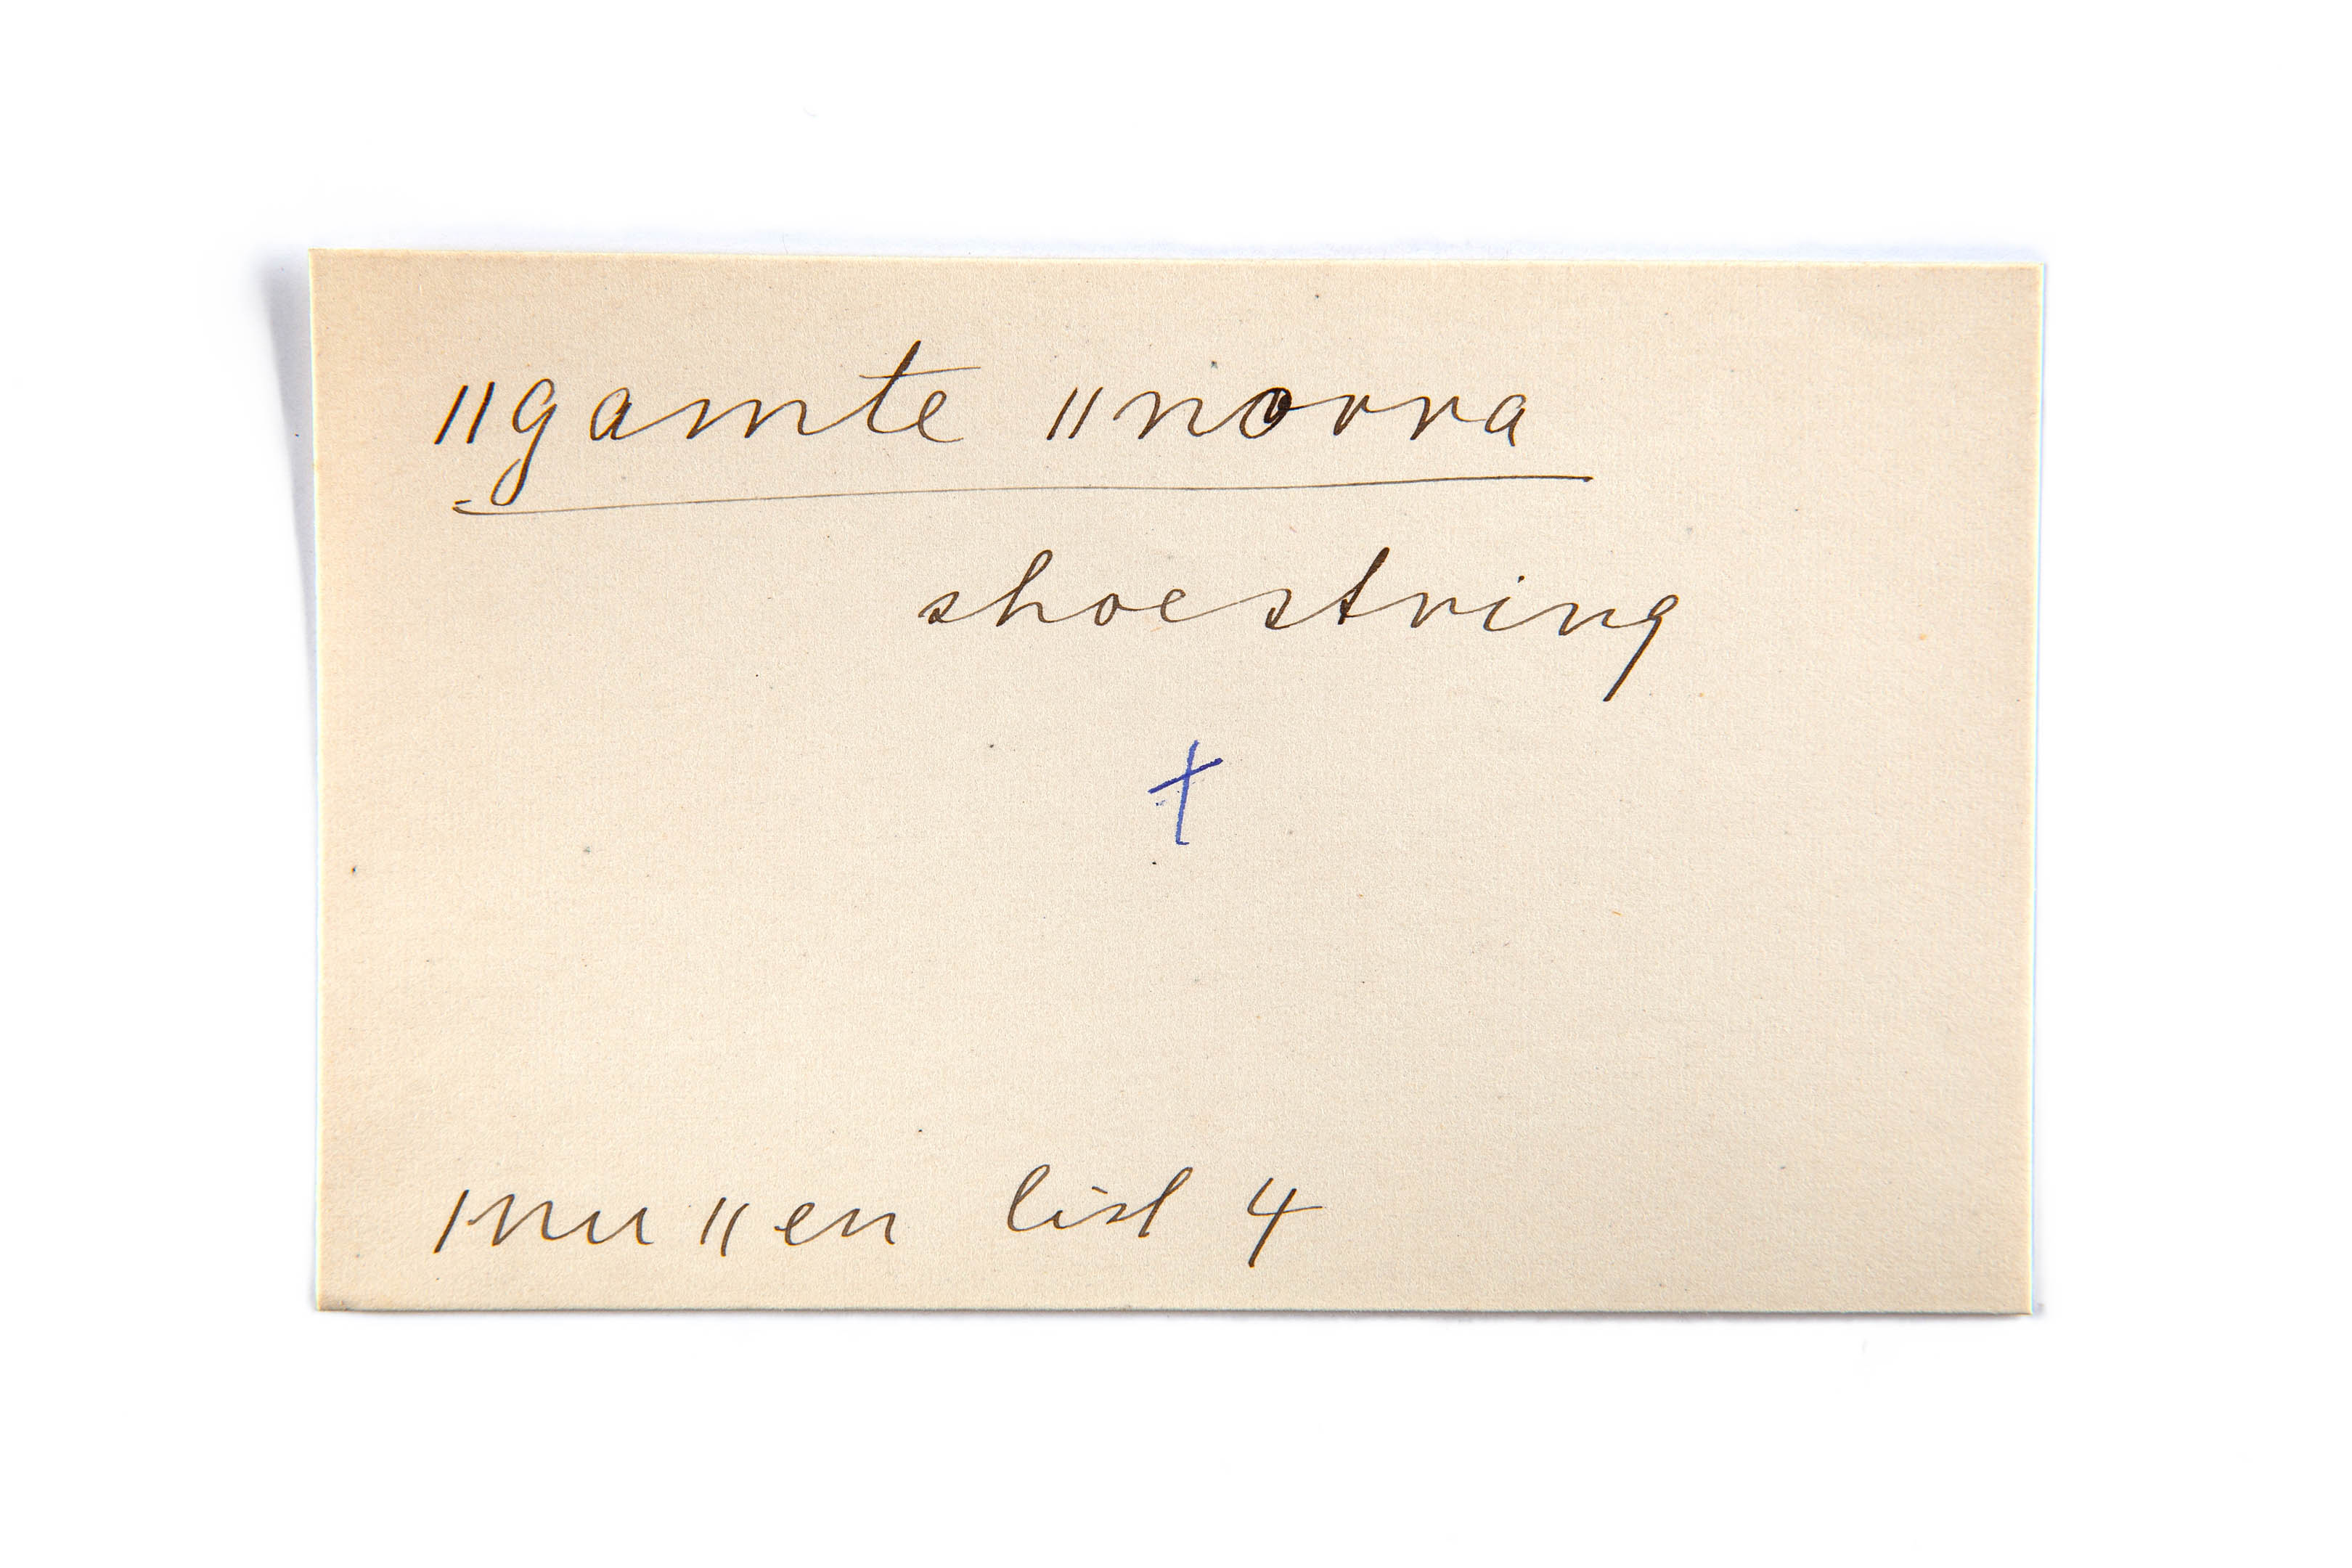 ||gamte ||norra
shoestring
+
|nu ||en list 4